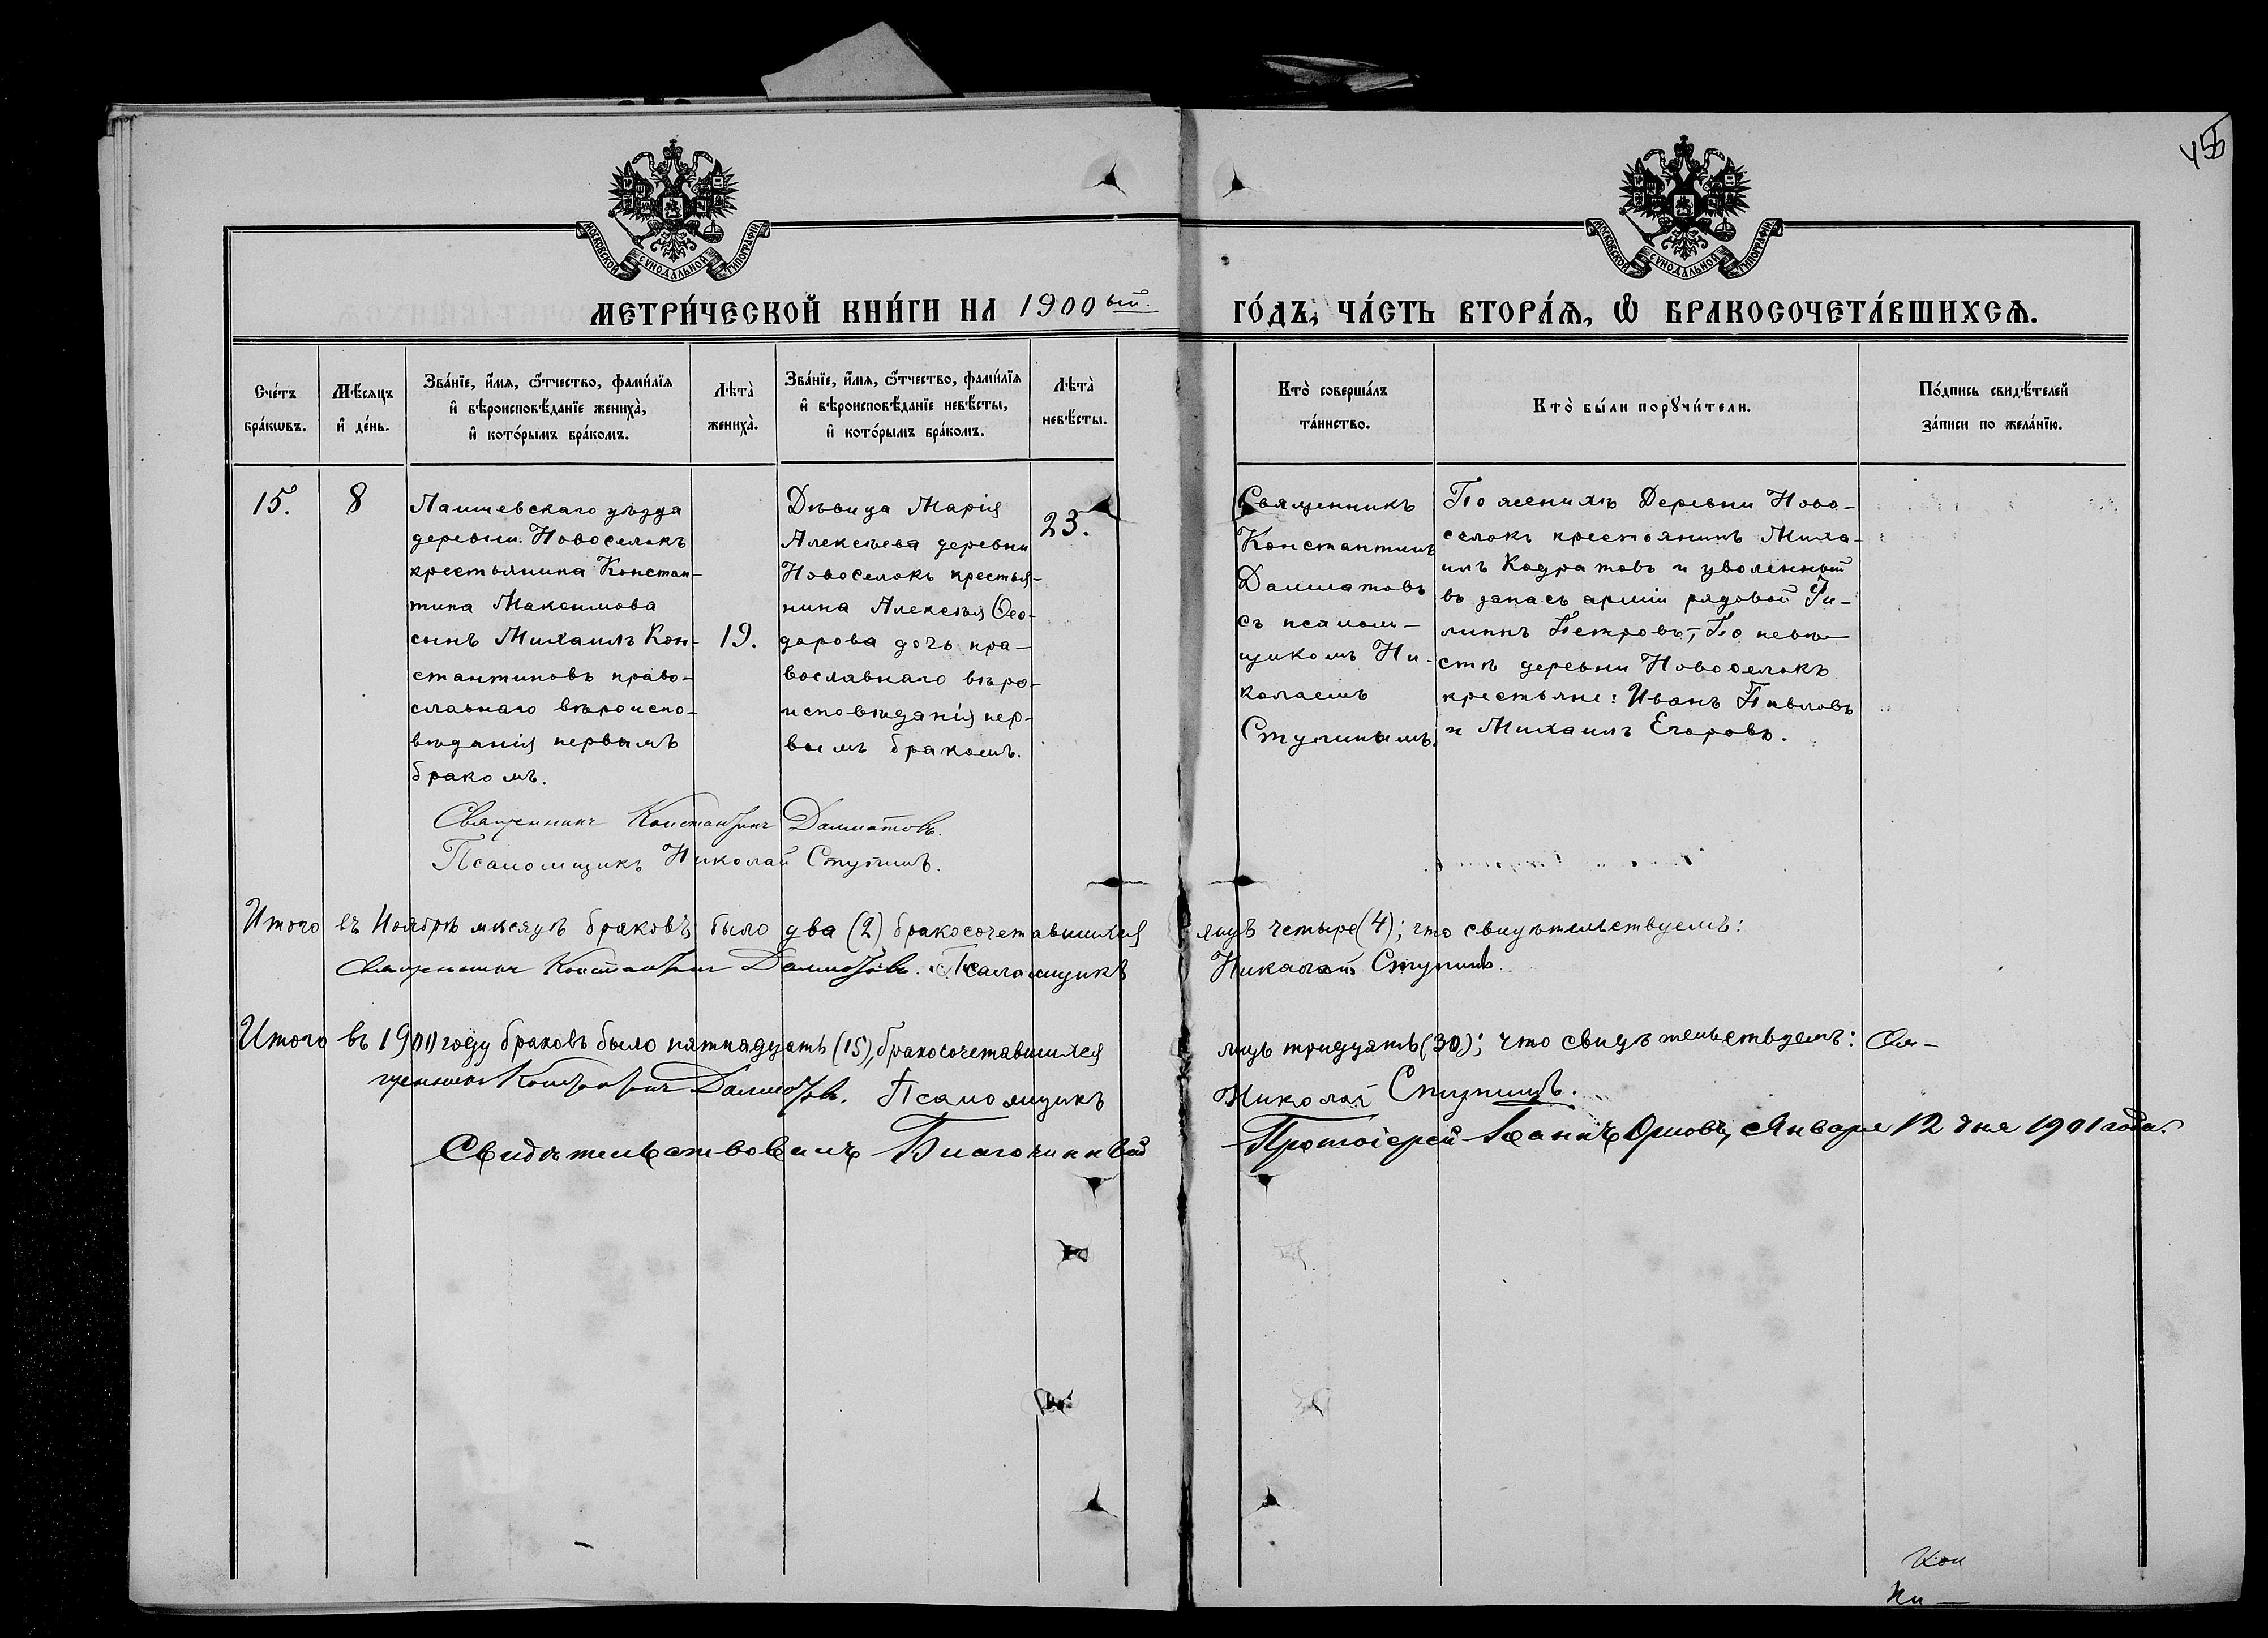 455
МОСКОВСКОЙ СѴНОДАЛЬНОЙ ТИПОГРАФІИ
МОСКОВСКОЙ СѴНОДАЛЬНОЙ ТИПОГРАФІИ
МЕТРИ́ЧЕСКОЙ КНИ́ГИ НА 1900ый.
ГО́ДЪ, ЧА́СТЬ ВТОРА́Ѧ, Ѡ҆ БРАКОСОЧЕТА́ВШИХСѦ.
Сче́тъ
бра́кѡвъ.
Мѣ́сѧцъ
и҆ де́нь.
Зва́нїе, и҆́мѧ, ѻ҆́тчество, фами́лїѧ
и҆ вѣроисповѣ́данїе жениха̀,
и҆ кото́рымъ бра́комъ.
Лѣта̀
жениха̀.
Зва́нїе, и҆́мѧ, ѻ҆́тчество, фами́лїѧ
и҆ вѣроисповѣ́данїе невѣ́сты,
и҆ кото́рымъ бра́комъ.
Лѣта̀
невѣ́сты.
Кто̀ соверша́лъ
та́инство.
Кто̀ бы́ли порꙋчи́тели.
По́дпись свидѣ́телей
за́писи по жела́нїю.
15.
8
Лаишевскаго уѣзда
деревни Новоселокъ
крестьянина Констан-
тина Максимова
сынъ Михаилъ Кон-
стантиновъ право-
славнаго вѣроиспо-
вѣданія первымъ
бракомъ.
19.
Дѣвица Марія
Алексѣева деревни
Новоселокъ крестья-
нина Алексѣя Ѳео-
дорова дочь пра-
вославнаго вѣро-
исповѣданія пер-
вымъ бракомъ.
23.
Священникъ
Константинъ
Далматовъ
съ псалом-
щикомъ Ни-
колаемъ
Ступинымъ.
По женихѣ Деревни Ново-
селокъ крестьянинъ Миха-
илъ Кодратовъ и уволенный
въ запасъ арміи рядовой Фи-
липпъ Петровъ,-По невѣ-
стѣ деревни Новоселокъ
крестьяне: Иванъ Павловъ
и Михаилъ Егоровъ.
Священникъ Константинъ Далматовъ.
Псаломщикъ Николай Ступинъ.
Итого въ Ноябрѣ мѣсяцѣ браковъ было два (2) бракосочетавшихся лицъ четыре (4); что свидѣтельствуемъ:
Священникъ Константинъ Далматовъ. Псаломщикъ Николай Ступинъ.
Итого въ 1900 году браковъ было пятнадцать (15), бракосочетавшихся лицъ тридцать (30); что свидѣтельствуемъ: Свя-
щенникъ Константинъ Далматовъ. Псаломщикъ Николай Ступинъ.
Свидѣтельствовалъ Благочинный Протоіерей Іоаннъ Орловъ, Января 12 дня 1901 года.
Кон
Ни—